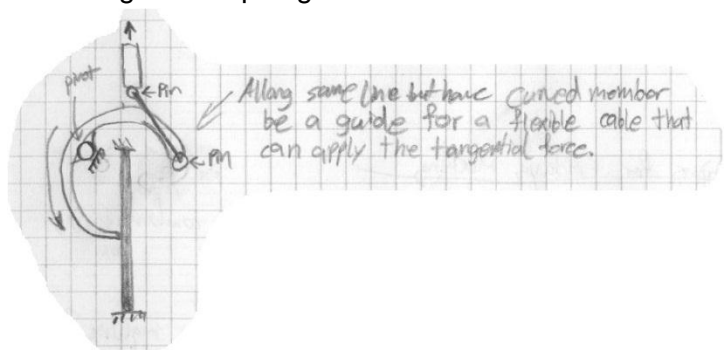 pivot
←Pin
←Pin
Allong same line but have curved member
be a guide for a flexible cable that
can apply the tangential force.